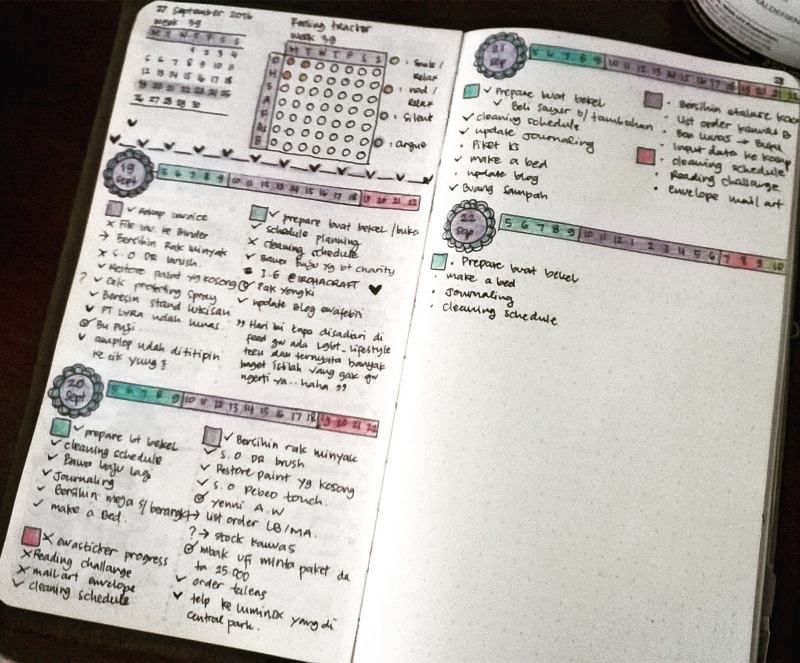 27 September 2016
Week 39
M T W T F S S
1 2 3 4
5 6 7 8 9 10 11
12 13 14 15 16 17 18
19 20 21 22 23 24 25
26 27 28 29 30
Feeling tracker
Week 39
M T W T F S S
: Smile /
Relax
: mad /
Relax
: Silent
: angre
19
Sept
5 6 7 8 9 10 11 12 13 14 15 16 17 18 19 20 21 22
✓ Rekap invoice
x File Inv. ke Binder
→ Bersihin Rak minyak
x S.O DR brush
✓ Restore paint yg kosong
? ✓ Cek protecting Spray
✓ Beresin stand lukisan
♥ PT LYRA udah lunas
Bu Puji
✓ amplop udah dititipin
ke cik yung
✓ prepare buat bekel /buka
✓ schedule planning
x cleaning schedule
✓ Bawa baju yg bt charity
I-6 @IROHACRAFT ♥
Pak Yongki
✓ update Blog
" Hari ini tanpa disadari di
feed gw ada LGBT_Lifestyle
teru dan ternyata banyak
banget istilah yang gak gw
ngerti ya... haha "
20
Sept
5 6 7 8 9 10 11 12 13 14 15 16 17 18 19 20 21 22
✓ prepare bt bekel
✓ cleaning schedule
✓ Bawa baju lagi
✓ Journaling
✓ Bersihin meja s/ berangkat
✓ make a Bed.
x progress
x Reading challange
x mail art envelope
✓ cleaning schedule
✓ Bersihin rak minyak
✓ S.O DR brush
✓ Restore paint yg kosong
✓ S.O Pebeo touch.
yenni A.W
→ list order LB/MA.
? → stock kanvas
mbak ufi minta paket da
ta 25.000
✓ order talens
♥ telp ke luminox yang di
central park.
21
Sep
5 6 7 8 9 10 11 12 13 14 15 16 17 18 19 20 21 22
✓ Prepare buat bekel
✓ Beli sayur b/ tambahan
✓ cleaning schedule
✓ update journaling
• Piket ks
✓ make a bed
• update blog
✓ Buang sampah
• Bersihin etalase
• List order kanvas B
• Bon lunas → Buku
• Input data ke komp
• cleaning schedule
• Reading challange
• envelope mail art
22
Sep
5 6 7 8 9 10 11 12 1 2 3 4 5 6 7 8 9 10
• Prepare buat bekel
• make a bed
• Journaling
• cleaning schedule